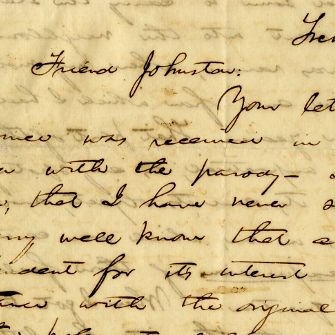 Friend Johnston:
Your let
was received in
with the parody—
, that I have never s
well know that a
dent for its interest
with the original